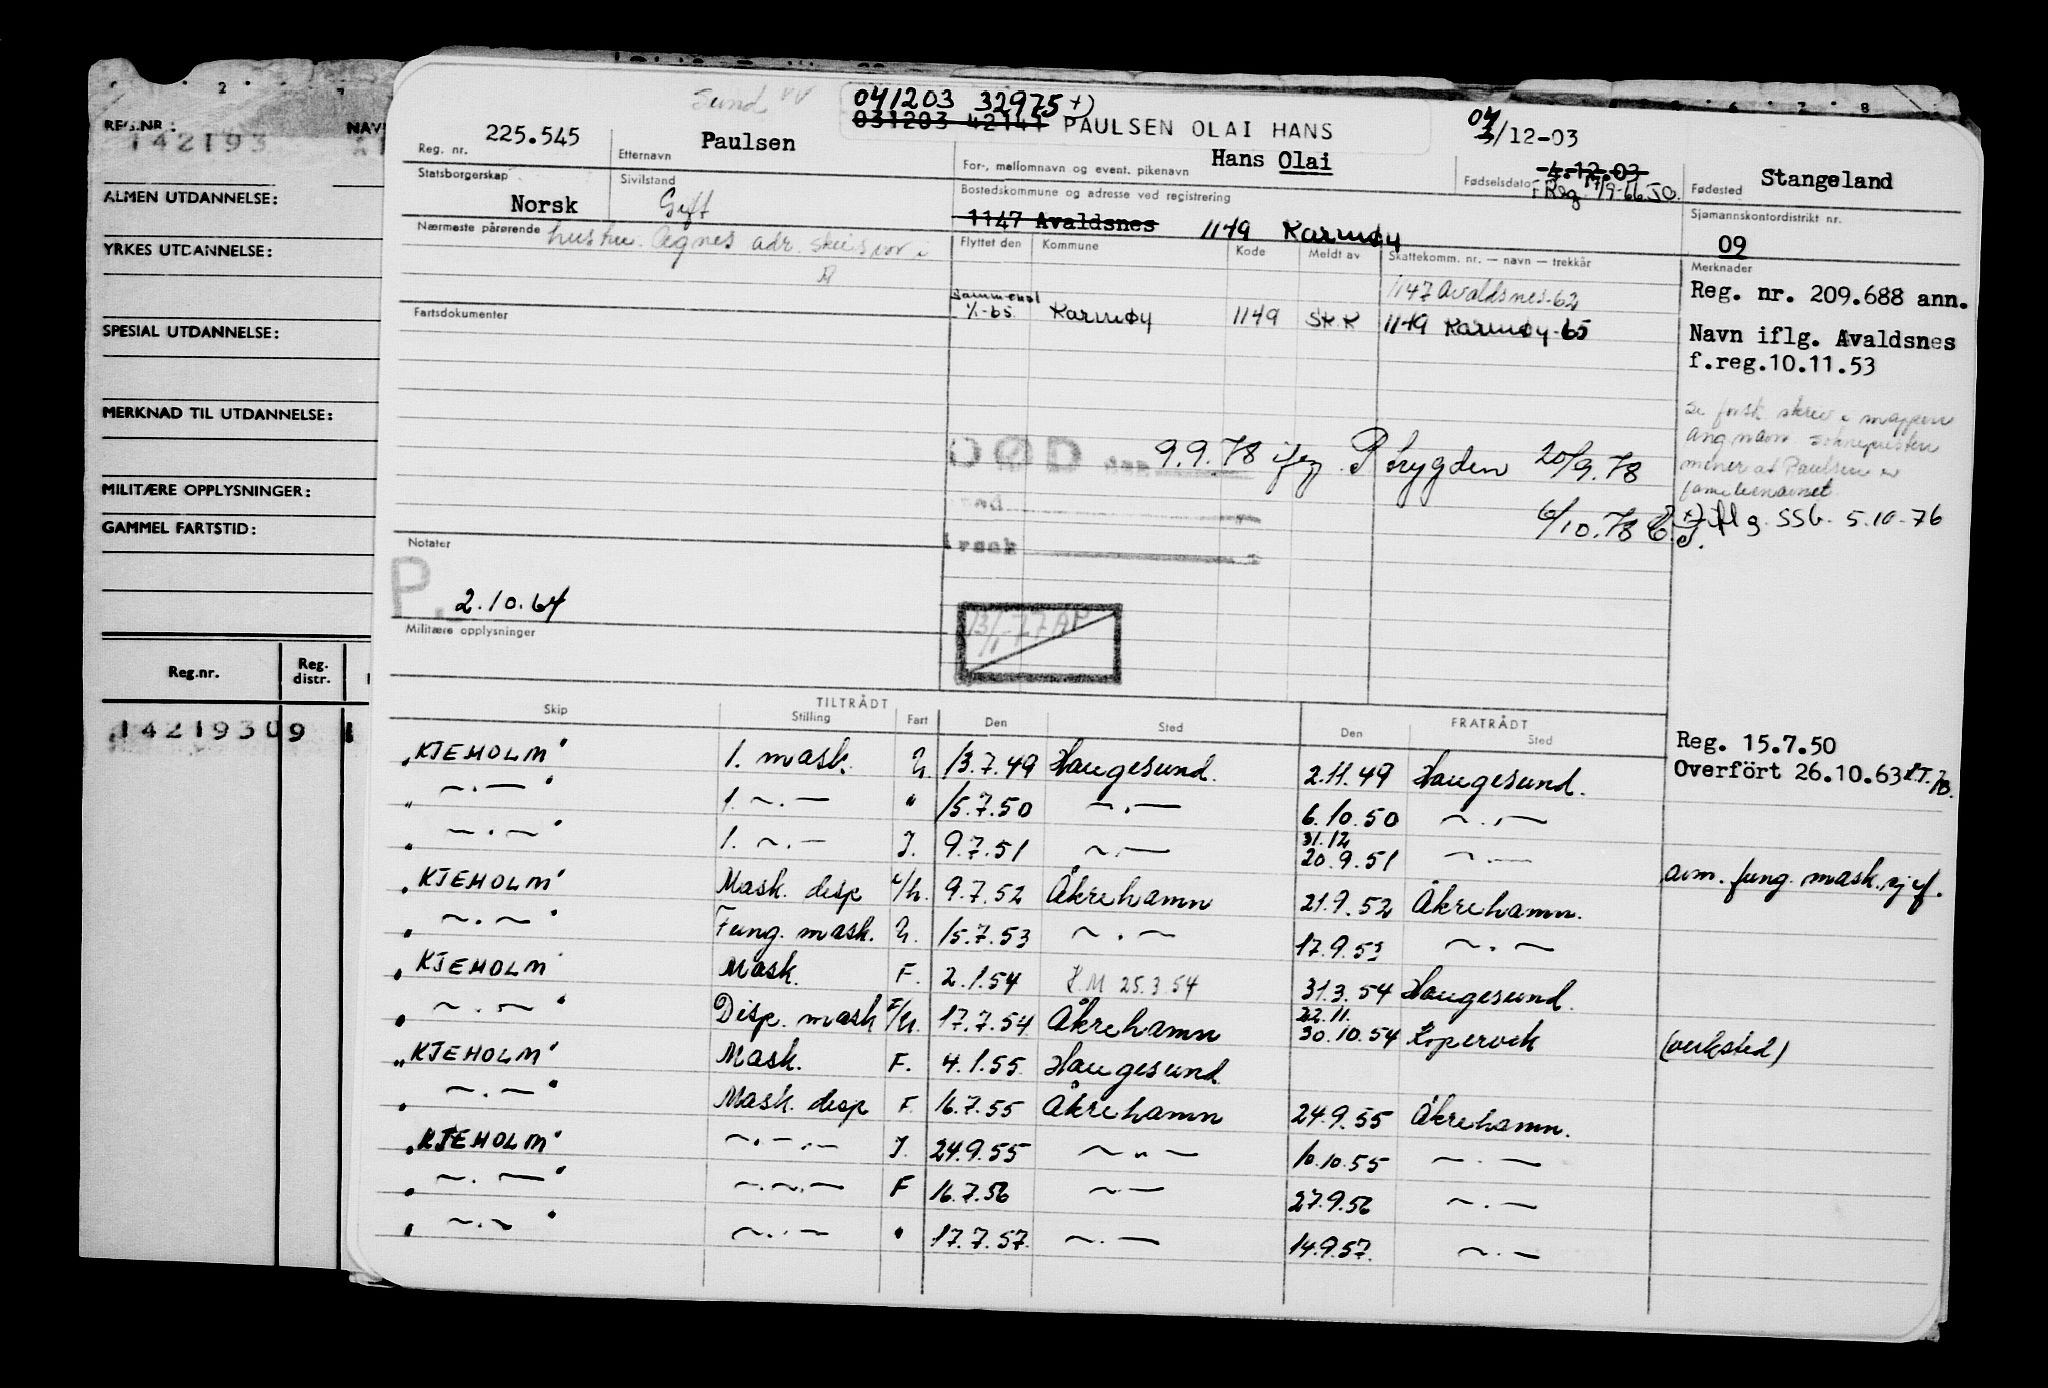 REG.NR.:
142193
ALMEN UTDANNELSE:
YRKES UTDANNELSE:
SPESIAL UTDANNELSE:
MERKNAD TIL UTDANNELSE:
MILITÆRE OPPLYSNINGER:
GAMMEL FARTSTID:
Reg.nr. Reg. distr.
14219309
Sund
041203 32975 +)
031203 42141 PAULSEN OLAI HANS
Reg. nr. 225.545 Etternavn Paulsen For-, mellomnavn og event. pikenavn Hans Olai
Fødselsdato 04/12-03
4.12.03
F.Reg. 17/9-66 JO.
Fødested Stangeland
Statsborgerskap Norsk Sivilstand Gift
Bostedskommune og adresse ved registrering
1147 Avaldsnes 1149 Karmøy
Sjømannskontordistrikt nr.
09
Nærmeste pårørende hustru. Agnes adr.
Flyttet den Kommune Kode Meldt av Skattekomm. nr. — navn — trekkår
1147 Avaldsnes-62
1/1-65 Karmøy 1149 SK.K 1149 Karmøy-65
Merknader
Reg. nr. 209.688 ann.
Navn iflg. Avaldsnes
f.reg.10.11.53
Se forsk. skriv i mappen
ang navn. Soknepresten
mener at Paulsen er
familienavnet
+) iflg. SSb. 5.10-76
Fartsdokumenter
9.9.78 P trygden 20/9.78
6/10.78
Notater
P. 2.10.64
13/1-77 AP
Militære opplysninger
Skip TILTRÅDT Stilling Fart Den Sted FRATRÅDT Den Sted
"KJEHOLM" 1. mask. U 13.7.49 Haugesund. 2.11.49 Haugesund.
Reg. 15.7.50
" ~.— " 1. ~.— " 15.7.50 ~.— 6.10.50 ~.—
Overfört 26.10.63
" ~.~ " 1. ~.— I. 9.7.51 ~.— 31.12 20.9.51 ~.—
"KJEHOLM" Mask. disp U/h. 9.7.52 Åkrehamn 21.9.52 Åkrehamn.
" ~.~ " Fung. mask. U. 15.7.53 ~.— 17.9.53 ~.—
"KJEHOLM" Mask. F. 2.1.54 H.M 25.3.54 31.3.54 Haugesund.
" ~.~ " Disp. mask F/U. 17.7.54 Åkrehamn 22.11. 30.10.54 Kopervik (verksted)
"KJEHOLM" Mask. F. 4.1.55. Haugesund.
" ~.— " Mask. disp F. 16.7.55 Åkrehamn 24.9.55 Åkrehamn.
"KJEHOLM" ~.—.— I. 24.9.55 ~ " ~ 10.10.55 ~.—
" ~.— " ~.~.— F 16.7.56 ~.— 27.9.56 ~.—
" ~.~ " ~.— " 17.7.57. ~.— 14.9.57. ~.—